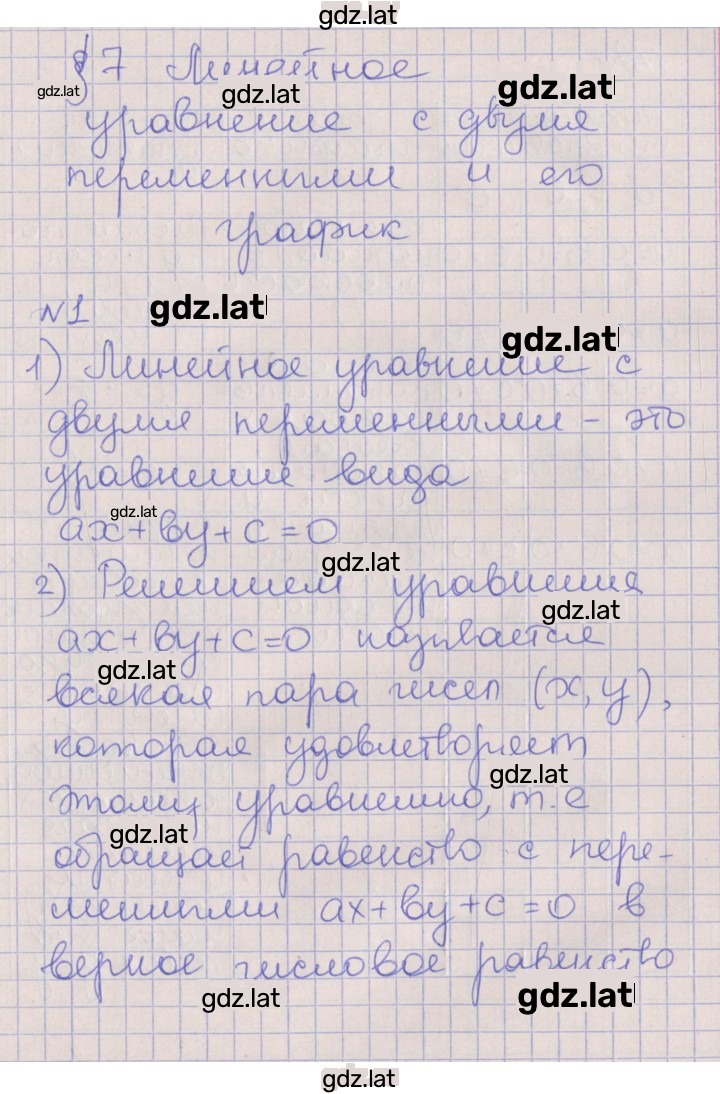 gdz.lat
§ 7 Линейное
gdz.lat gdz.lat gdz.lat
уравнение с двумя
переменными и его
график
№1 gdz.lat
gdz.lat
1) Линейное уравнение с
двумя переменными – это
уравнение вида
gdz.lat
ax + by + c = 0
gdz.lat
2) Решением уравнения
gdz.lat
ax + by + c = 0 называется
gdz.lat
всякая пара чисел (x, y),
которая удовлетворяет
gdz.lat
этому уравнению, т.е
gdz.lat
обращает равенство с пере-
менными ax + by + c = 0 в
верное числовое равенство
gdz.lat gdz.lat
gdz.lat